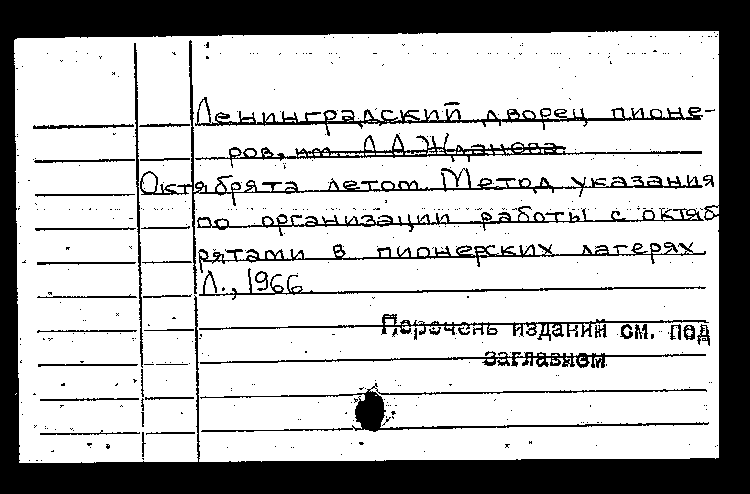 Ленинградский дворец пионе-
ров, им. А.А.Жданова.
Октябрята летом. Метод указания
по организации работы с октяб
рятами в пионерских лагерях
Л., 1966.
Перечень изданий см. под
заглавием